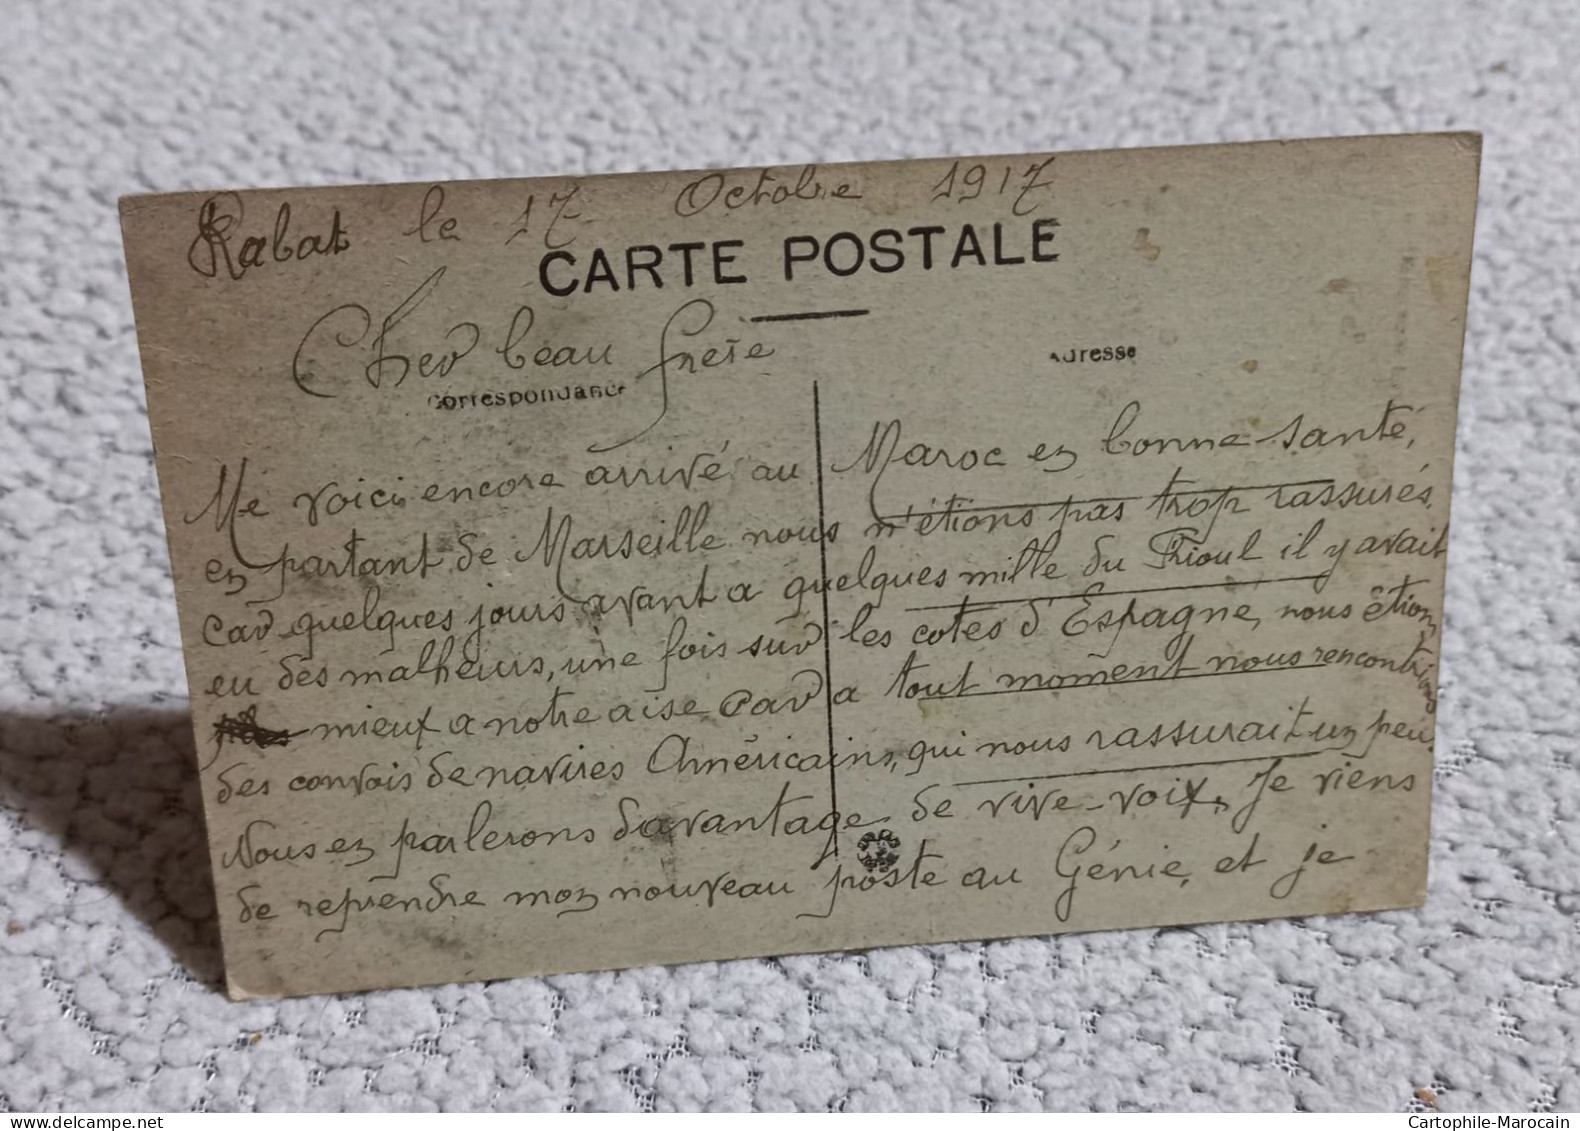 Rabat le 17 Octobre 1917
CARTE POSTALE
Cher beau frère
Correspondance
Adresse
Me voici encore arrivé au Maroc en bonne santé,
en partant de Marseille nous n'étions pas trop rassurés.
car quelques jours avant a quelques mille du Frioul il y avait
eu des malheurs, une fois sur les cotes d'Espagne, nous étions
mieux a notre aise car a tout moment nous rencontrions
des convois de navires Américains, qui nous rassurait un peu.
Nous en parlerons davantage de vive-voix, Je viens
de reprendre mon nouveau poste au Génie, et je
Cartophile-Marocain